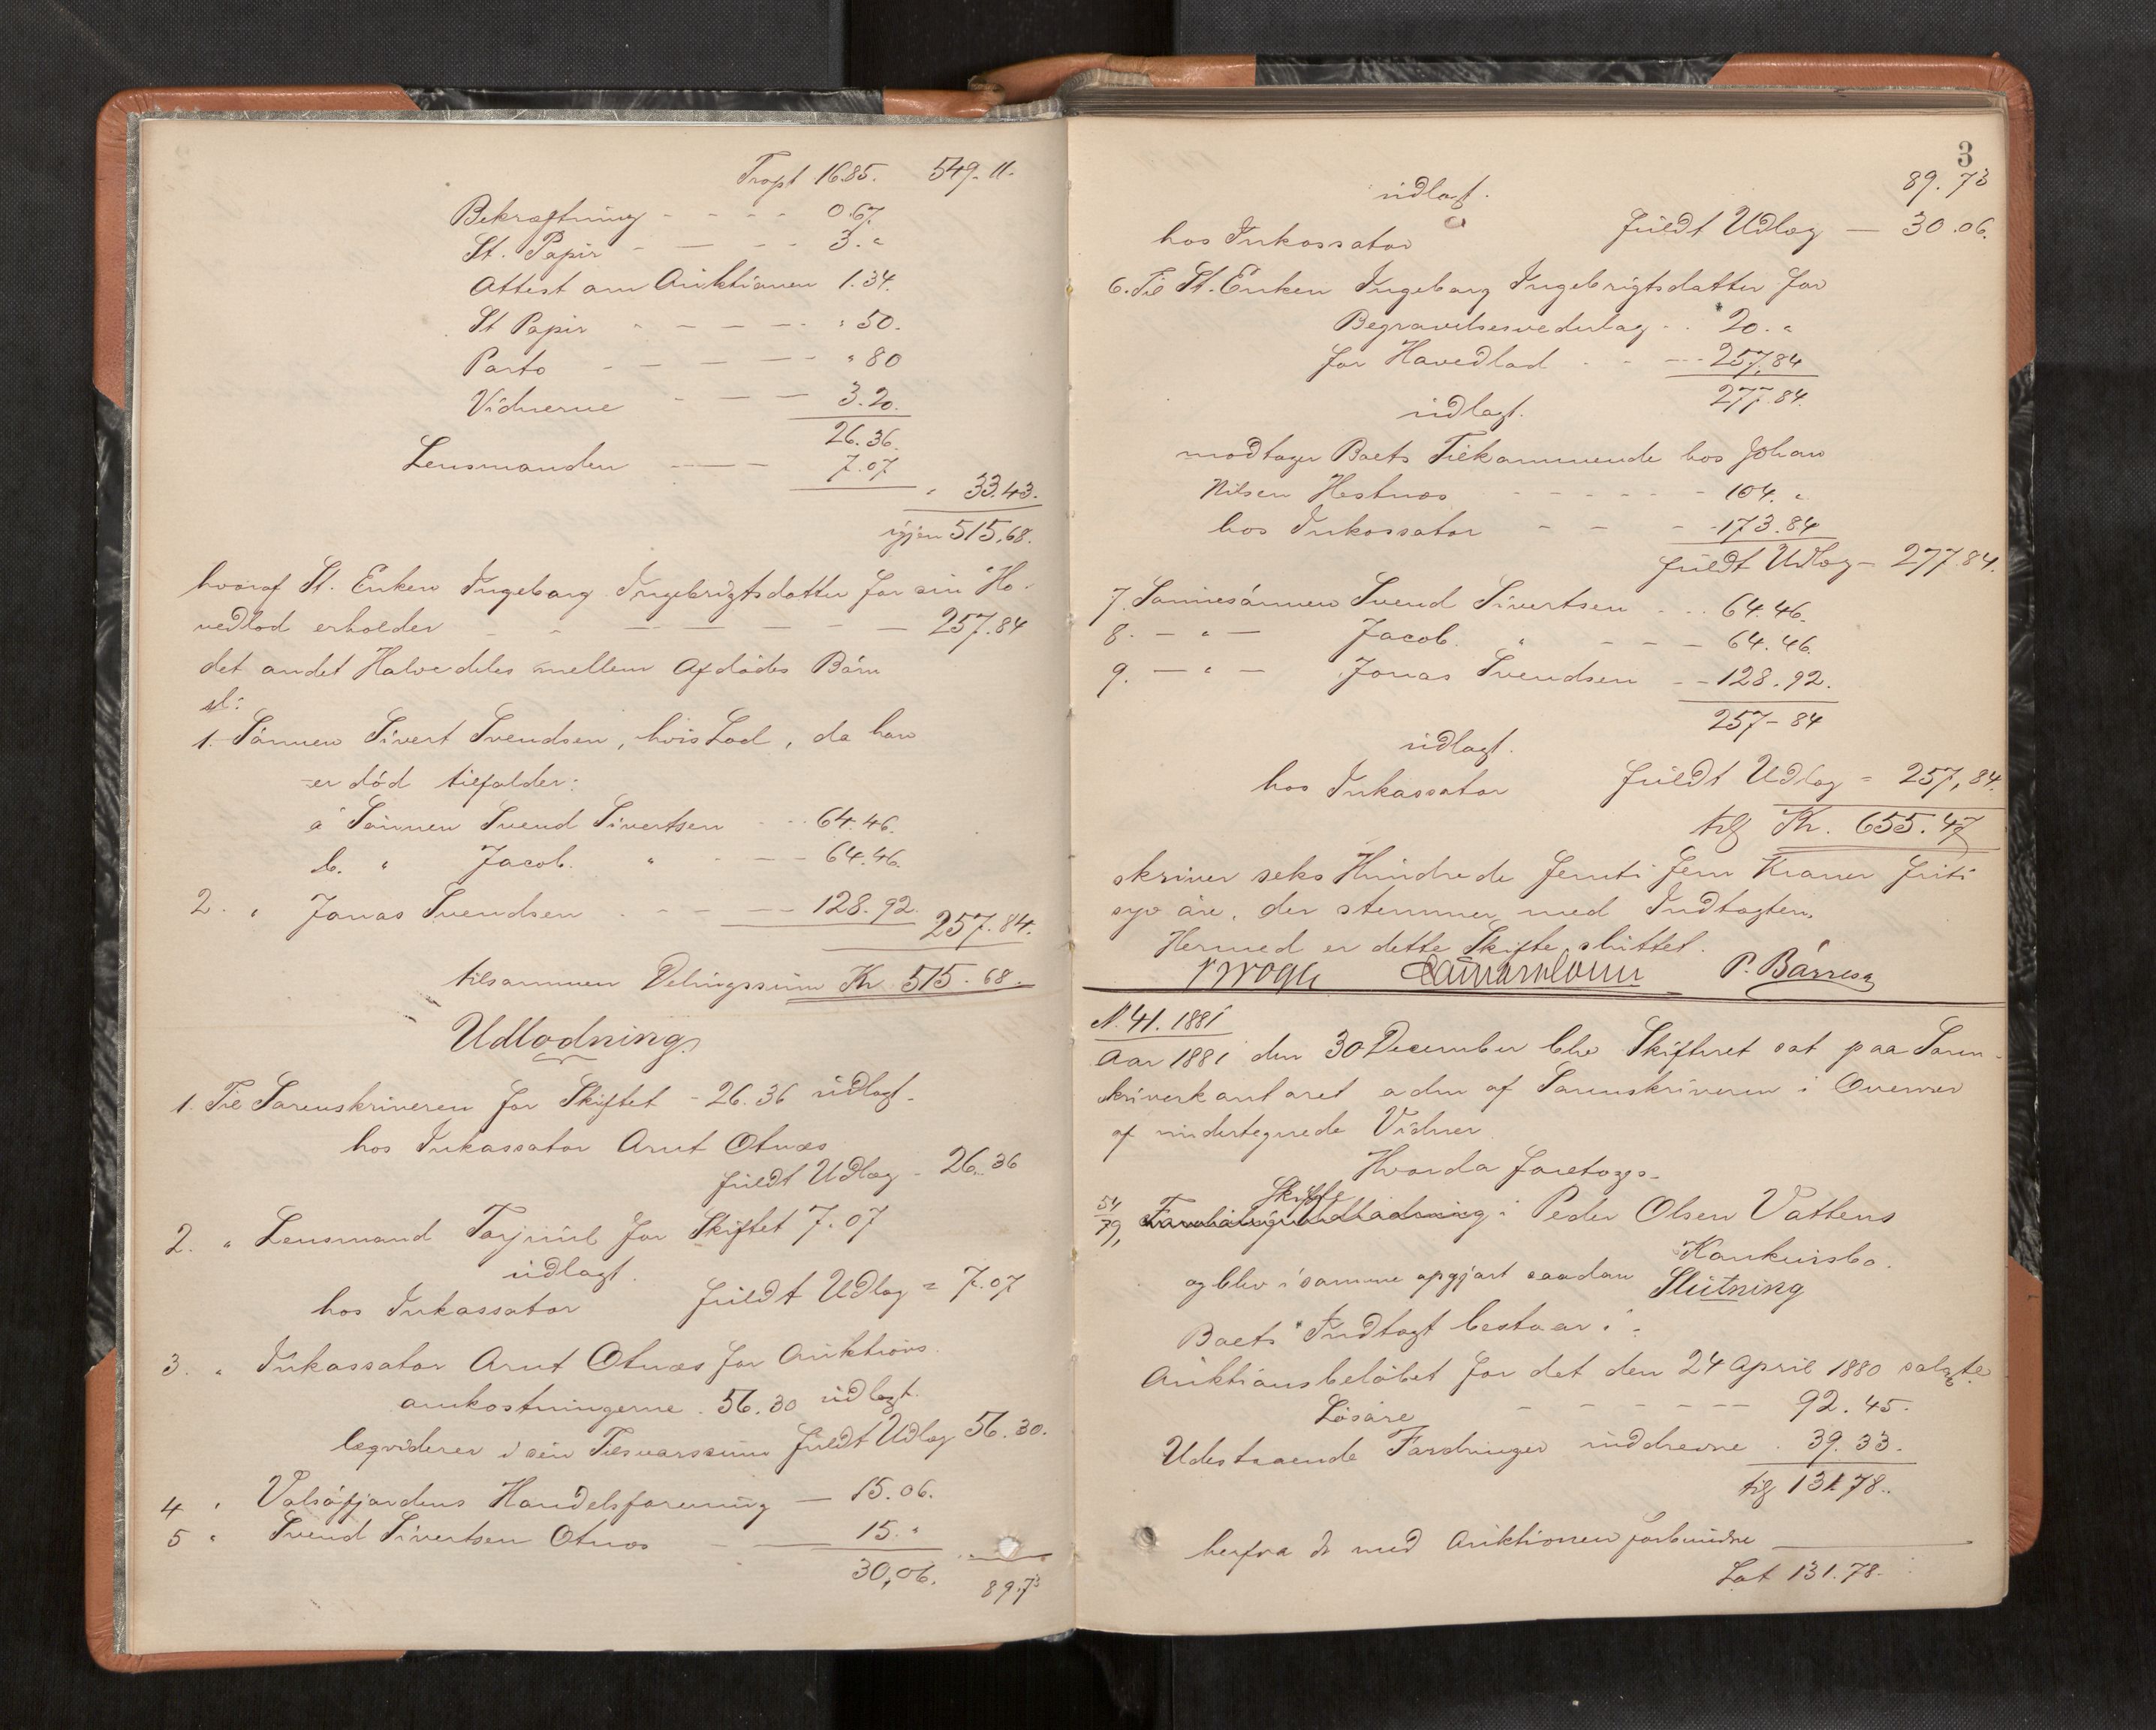 Tropt 16.85. 549.11.
Bekræftning - - - - 0.67.
St. Papir - — - - 3. "
Attest om Auktionen 1.34.
St Papir - - - - " 50.
Porto - - - - " 80
Vidnerne - - - 3.20.
26.36.
Lensmanden - — - 7.07
" 33.43.
igjen 515,68.
hvoraf St. Enken Ingeborg Ingebrigtsdatter for sin Ho-
vedlod erholder - - - - - - 257.84
det andet Halve deles mellem Afdødes Børn
sl:
1. Sønnen Sivert Svendsen, hvis Lod, da han
er død tilfalder:
a Sønnen Svend Sivertsen - - 64.46.
b. " Jacob. " - - - 64.46.
2. " Jonas Svendsen - - - - 128.92. 257.84.
tilsammen Delingssum Kr 515.68.
Udlodning.
1. Til Sorenskriveren for Skiftet - 26.36 udlagt.
hos Inkassator Arnt Otnæs
fuldt Udlæg - 26.36
2. " Lensmand Torjuul for Skiftet 7.07
udlagt.
hos Inkassator fuldt Udlæg = 7.07
3. " Inkassator Arnt Otnæs for Auktions-
omkostningerne. 56.30 udlagt.
liqviderer i sin Tilsvarssum fuldt Udlæg 56.30.
4 " Valsøfjordens Handelsforening — 15.06.
5 " Svend Sivertsen Otnæs - — 15. "
30,06. 89.73
3
89.73
udlagt.
hos Inkassator fuldt Udlæg — 30.06.
6. Til St. Enken Ingeborg Ingebrigtsdatter for
Begravelsesvederlag - - 20. "
for Hovedlod - - - 257,84
277.84.
udlagt.
modtager Boets Tilkommende hos Johan
Nilsen Hestnæs - - - - - 104. "
hos Inkassator - - - 173.84
fuldt Udlæg - 277.84.
7. Sønnesønnen Svend Sivertsen - - 64.46.
8. — " — Jacob. " - - - 64.46.
9. — " — Jonas Svendsen - - 128.92.
257-84
udlagt.
hos Inkassator fuldt Udlæg = 257,84.
tils Kr. 655.47
skriver seks Hundrede femti fem Kroner firti
syv øre, der stemmer med Indtægten.
Hermed er dette Skifte sluttet.
P. Børresen
N. 41. 1881
Aar 1881 den 30 December blev Skifteret sat paa Soren-
skriverkontoret adm af Sorenskriveren i Overvær
af undertegnede Vidner
Hvorda foretoges
54/79, Skifte i Peder Olsen Vattens
Konkursbo.
og blev i samme opgjort saadan Slutning
Boets Indtægt bestaar i:
Auktionsbeløbet for det den 24 April 1880 solgte
Løsøre - - - - - - - 92.45.
Udestaaende Fordringer inddrevne - 39.33.
tils 131.78.
herfra de med Auktionen forbundne
Lat 131.78.